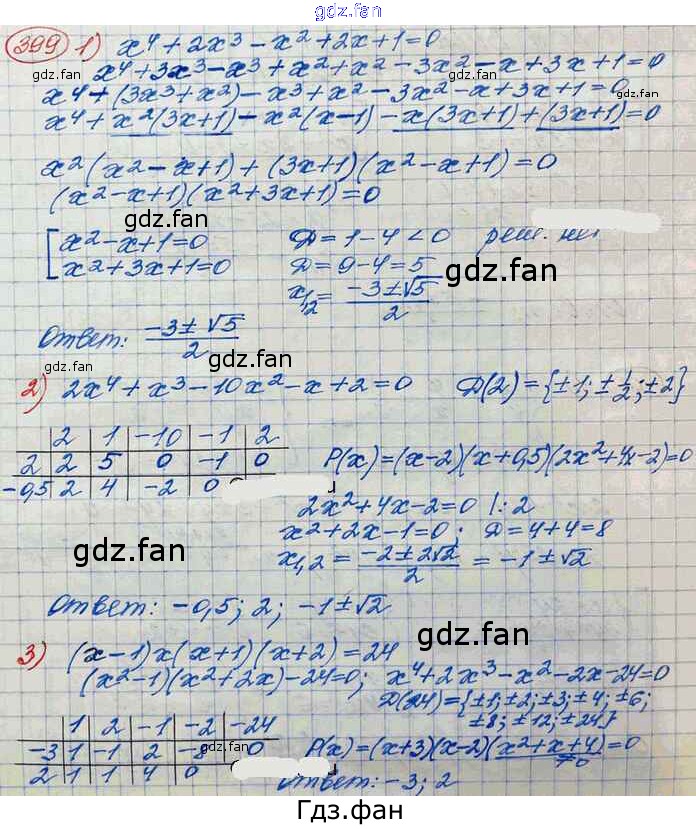 gdz.fan
399 1) x⁴+2x³-x²+2x+1=0
gdz.fan
x⁴+3x³-x³+x²+x²-3x²-x+3x+1=0
gdz.fan
x⁴+(3x³+x²)-x³+x²-3x²-x+3x+1=0
x⁴+x²(3x+1)-x²(x-1)-x(3x+1)+(3x+1)=0
x²(x²-x+1)+(3x+1)(x²-x+1)=0
(x²-x+1)(x²+3x+1)=0
gdz.fan
x²-x+1=0 D=1-4<0 реш. нет
x²+3x+1=0 D=9-4=5
gdz.fan
gdz.fan
x₁,₂=(-3±√5)/2
Ответ: (-3±√5)/2
gdz.fan
2) 2x⁴+x³-10x²-x+2=0 D(2)={±1; ±1/2; ±2}
2 1 -10 -1 2
2 2 5 0 -1 0 P(x)=(x-2)(x+0,5)(2x²+4x-2)=0
-0,5 2 4 -2 0
2x²+4x-2=0 |:2
x²+2x-1=0; D=4+4=8
gdz.fan
gdz.fan
x₁,₂=(-2±2√2)/2=-1±√2
Ответ: -0,5; 2; -1±√2
gdz.fan
3) (x-1)x(x+1)(x+2)=24
(x²-1)(x²+2x)-24=0; x⁴+2x³-x²-2x-24=0
D(24)={±1; ±2; ±3; ±4; ±6;
±8; ±12; ±24}
1 2 -1 -2 -24
gdz.fan
-3 1 -1 2 -8 0 P(x)=(x+3)(x-2)(x²+x+4)=0
gdz.fan
≠0
2 1 1 4 0
Ответ: -3; 2
Гдз.фан